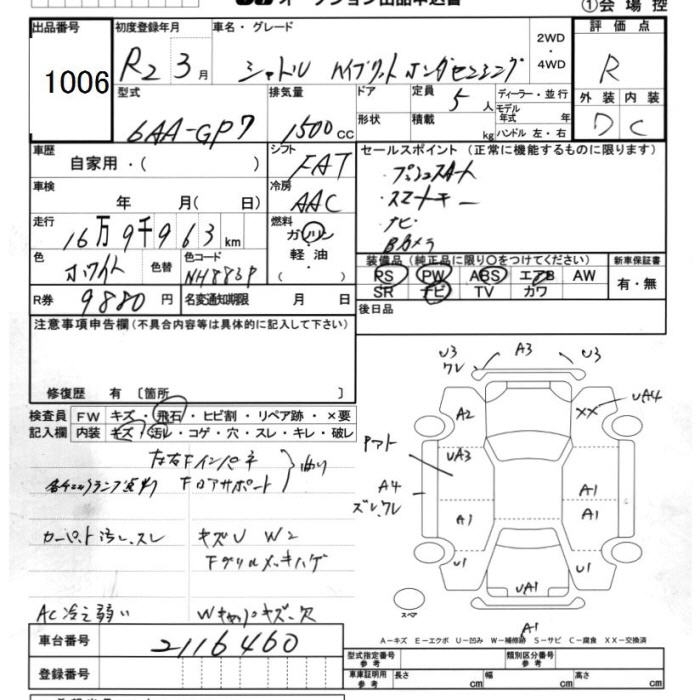 オークション出品申込書
①会場控
出品番号 1006
初度登録年月 R2 3月
車名・グレード シャトル ハイブリット ホンダセンシング
2WD・4WD
評価点 R
外装 内装
D C
型式 6AA-GP7
排気量 1500cc
ドア
形状
定員 5人
積載 kg
ディーラー・並行
モデル年式 年
ハンドル 左・右
車歴 自家用・( )
シフト FAT
車検 年 月( 日)
冷房 AAC
走行 16万9千963km
燃料 ガソリン・軽油・
色 ホワイト 色替
色コード NH883P
R券 9880円
名変通知期限 月 日
セールスポイント(正常に機能するものに限ります)
・プッシュスタート
・スマートキー
・ナビ
・Bカメラ
装備品(純正品に限り〇をつけてください)
PS PW ABS エアB AW
SR ナビ TV カワ
新車保証書 有・無
後日品
注意事項申告欄(不具合内容等は具体的に記入して下さい)
修復歴 有〔箇所 〕
検査員記入欄
FW キズ・飛石・ヒビ割・リペア跡・×要
内装 キズ・汚レ・コゲ・穴・スレ・キレ・破レ
左右Fインパネ
Fロアサポート
曲り
各チェックランプ点灯
カーペット汚レ、スレ
キズU W2
Fグリルメッキハゲ
AC冷え弱い
Wキャップキズ、欠
U3 ワレ
A3
U3
A2
XX
UA4
UA3
Pアト
A4
ズレ、ワレ
A1
A1
A1
U1
U1
UA1
A1
スペア
A-キズ E-エクボ U-凹み W-補修跡 S-サビ C-腐食 XX-交換済
車台番号 2116460
登録番号
型式指定番号 参考
類別区分番号 参考
車庫証明用 参考
長さ cm
幅 cm
高さ cm